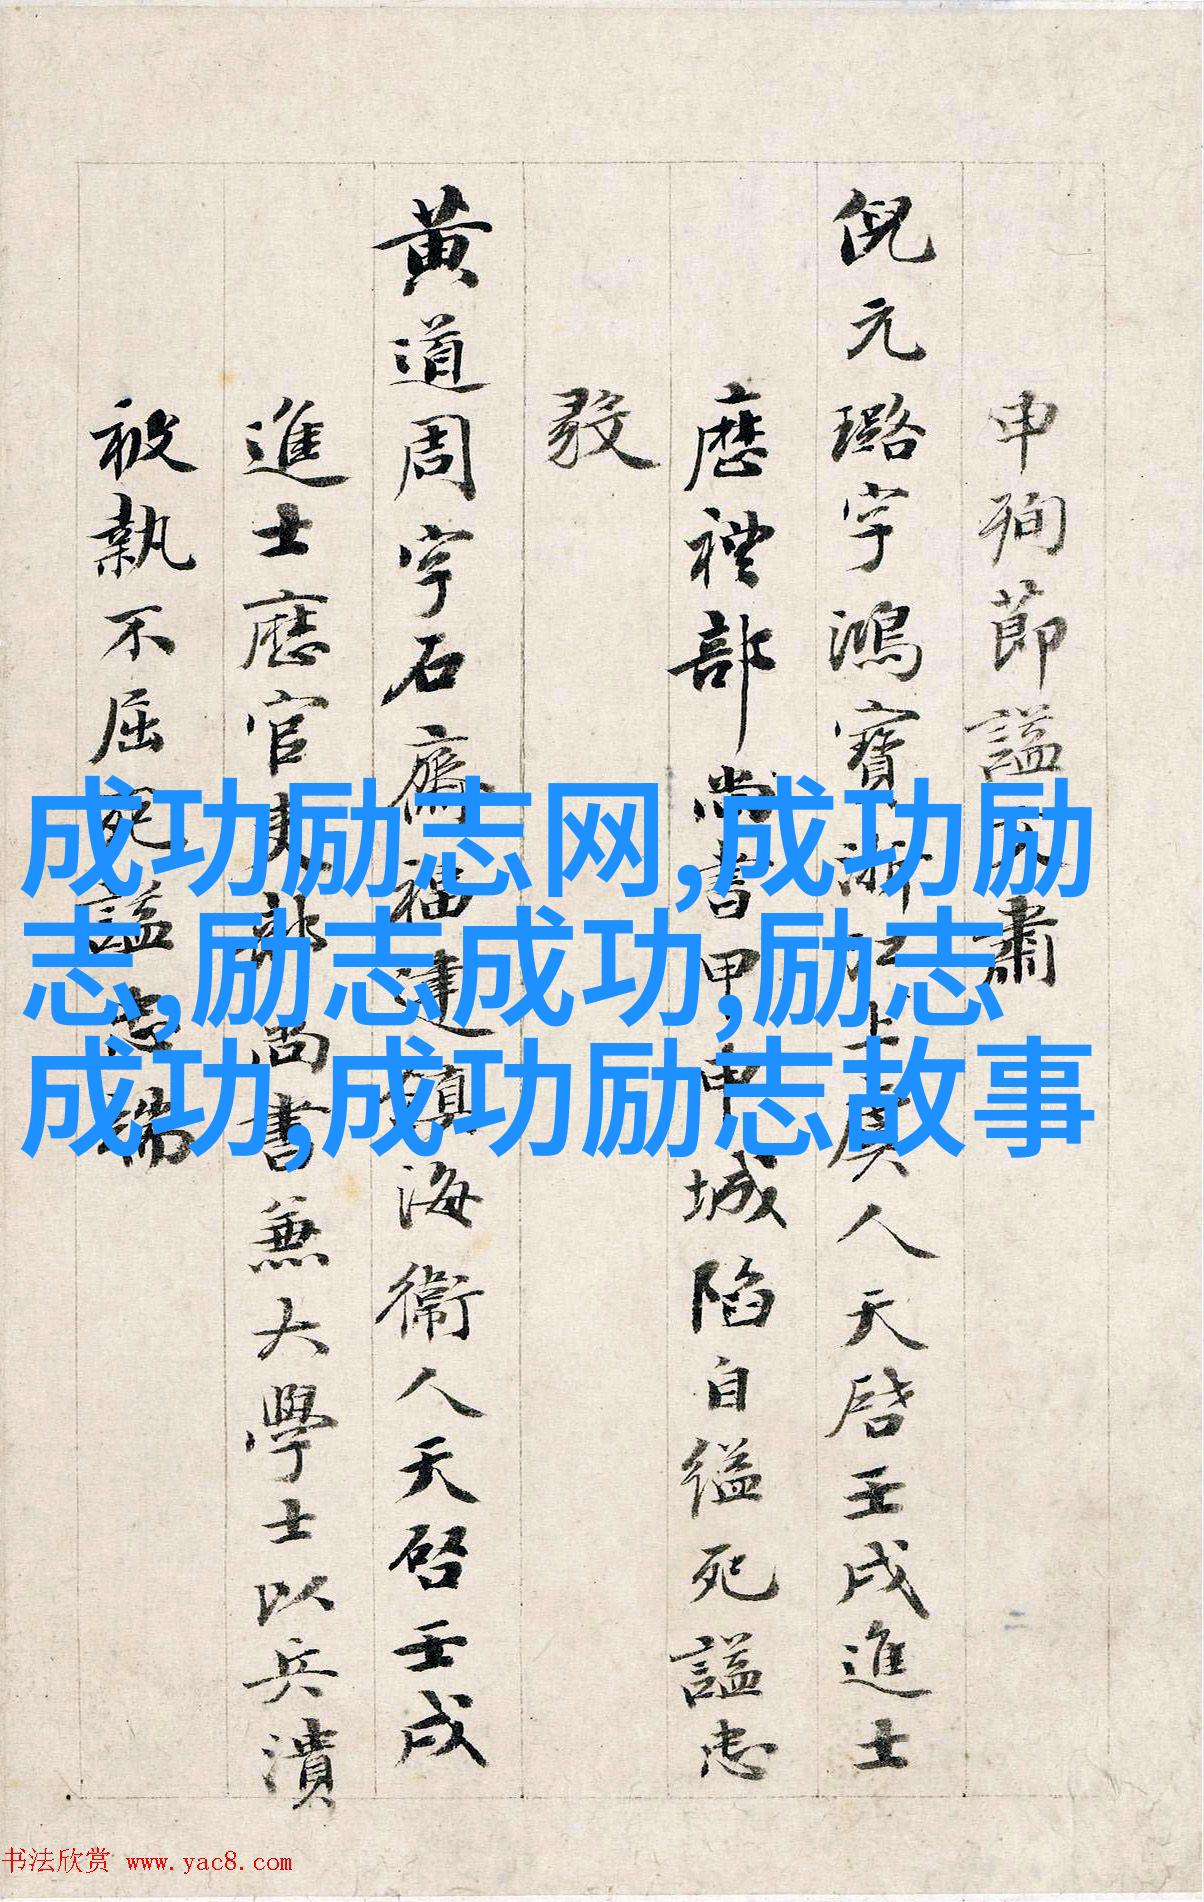 申殉節謚文肅
倪元璐字鴻寶浙江上虞人天啓壬戌進士
歷禮部尚書甲申城陷自縊死謚忠
毅
黄道周字石齋福建鎮海衛人天啓壬戌
進士歷官吏部尚書兼大學士以兵潰
被執不屈死謚忠端
成功励志网,成功励
志,励志成功,励志
成功,成功励志故事
书法欣赏 www.yac8.com